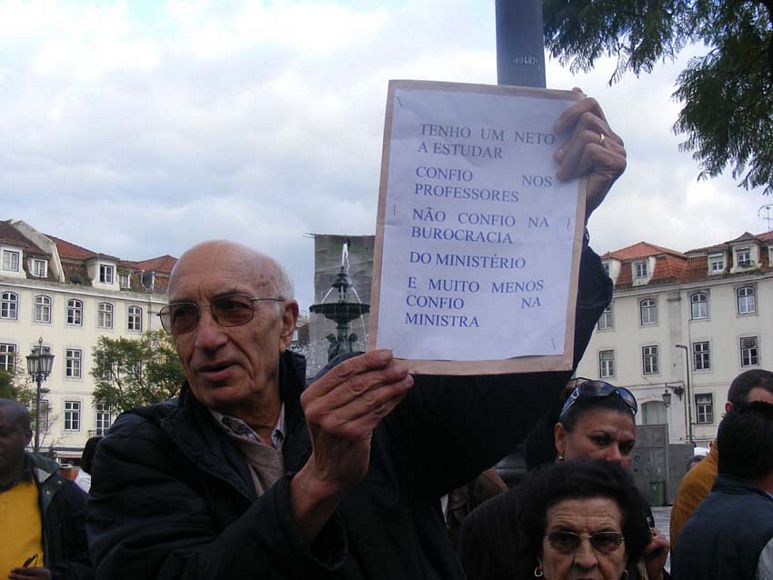 40487
TENHO UM NETO
A ESTUDAR
CONFIO NOS
PROFESSORES
NÃO CONFIO NA
BUROCRACIA
DO MINISTÉRIO
E MUITO MENOS
CONFIO NA
MINISTRA